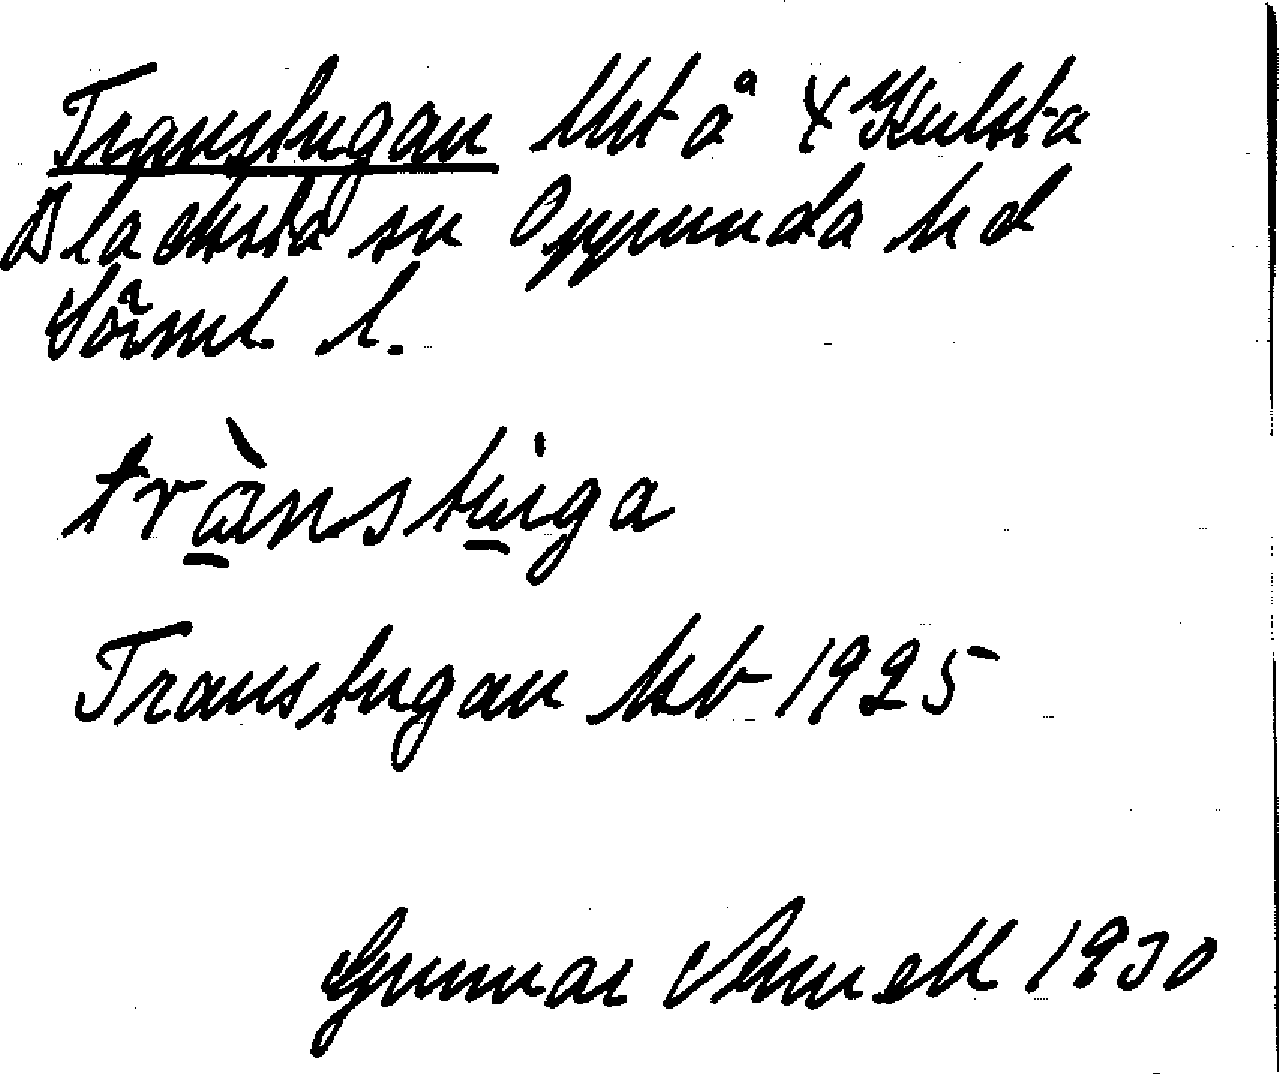 Transtugan lht å Y Kulsta
Blacksta sn Oppunda hd
Söml l.
trànstuga
Transtugan kb 1925
Gunnar Arnell 1930